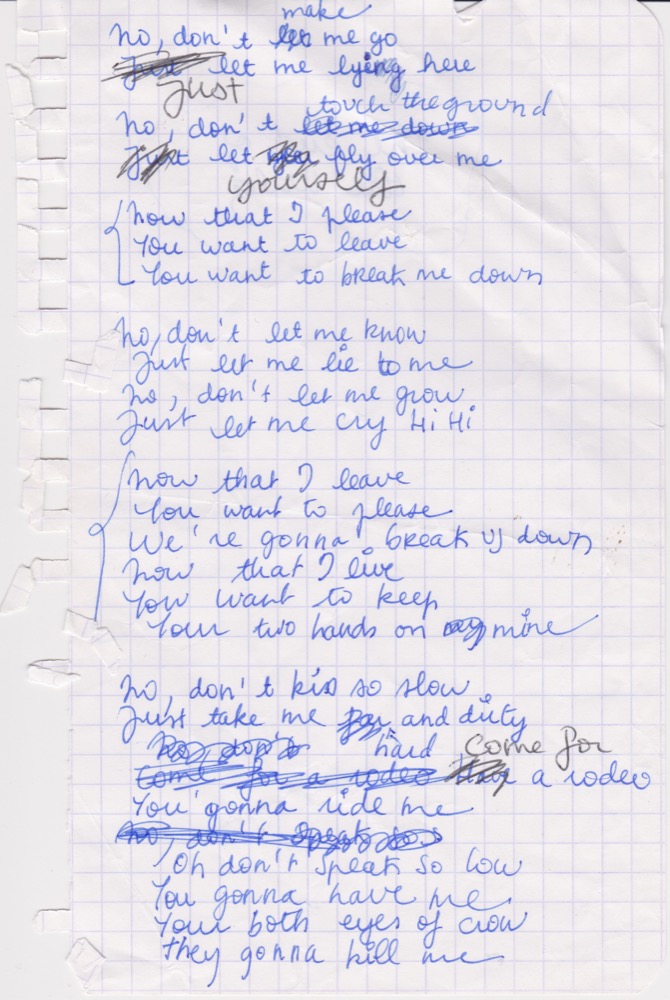 make
No, don't let me go
Just let me lying here
Just
touch the ground
No, don't let me down
Just let fly over me
yourself
Now that I please
You want to leave
You want to break me down
No, don't let me know
Just let me lie to me
No, don't let me grow
Just let me cry Hi Hi
Now that I leave
You want to please
We're gonna break us down
Now that I live
You want to keep
Your two hands on my mine
No, don't kiss so slow
Just take me and dirty
No, don't hard Come for
Come for a rodeo a rodeo
You gonna ride me
No, don't speak so
Oh don't speak so low
You gonna have me
Your both eyes of crow
They gonna kill me